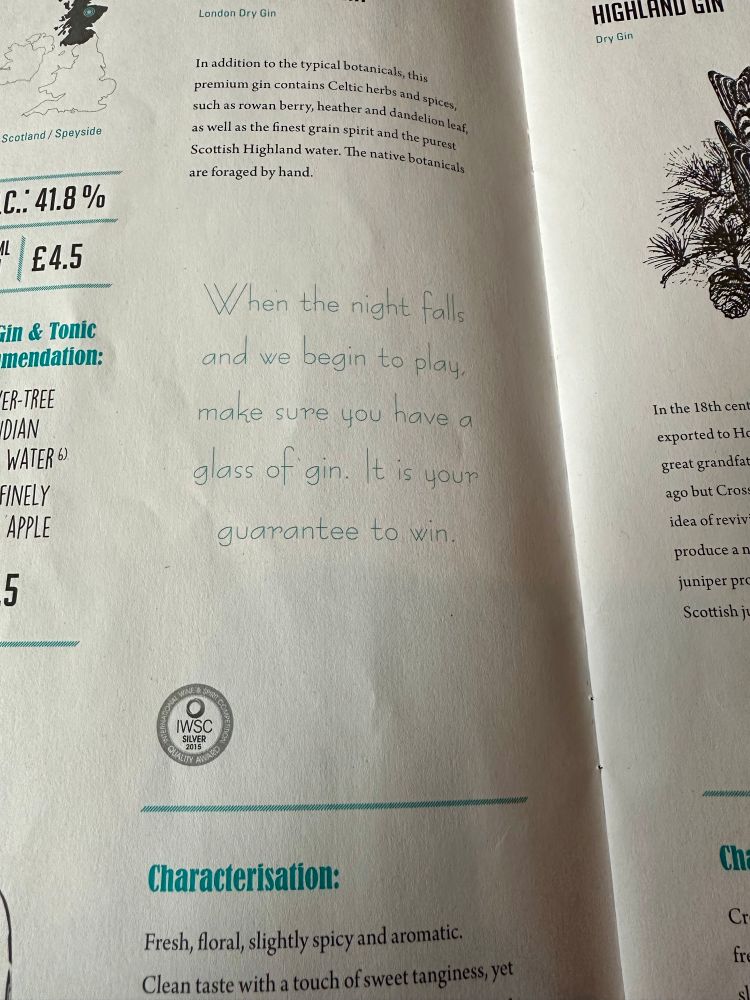 London Dry Gin
In addition to the typical botanicals, this
premium gin contains Celtic herbs and spices,
such as rowan berry, heather and dandelion leaf,
as well as the finest grain spirit and the purest
Scottish Highland water. The native botanicals
are foraged by hand.
Scotland / Speyside
C.: 41.8 %
ML
£4.5
Gin & Tonic
mendation:
ER-TREE
DIAN
WATER 6)
FINELY
APPLE
.5
When the night falls
and we begin to play,
make sure you have a
glass of gin. It is your
guarantee to win.
INTERNATIONAL WINE & SPIRIT COMPETITION
IWSC
SILVER
2015
QUALITY AWARD
Characterisation:
Fresh, floral, slightly spicy and aromatic.
Clean taste with a touch of sweet tanginess, yet
HIGHLAND GIN
Dry Gin
In the 18th cent
exported to Ho
great grandfat
ago but Cross
idea of revivi
produce a n
juniper pro
Scottish ju
Cha
Cr
fre
sl